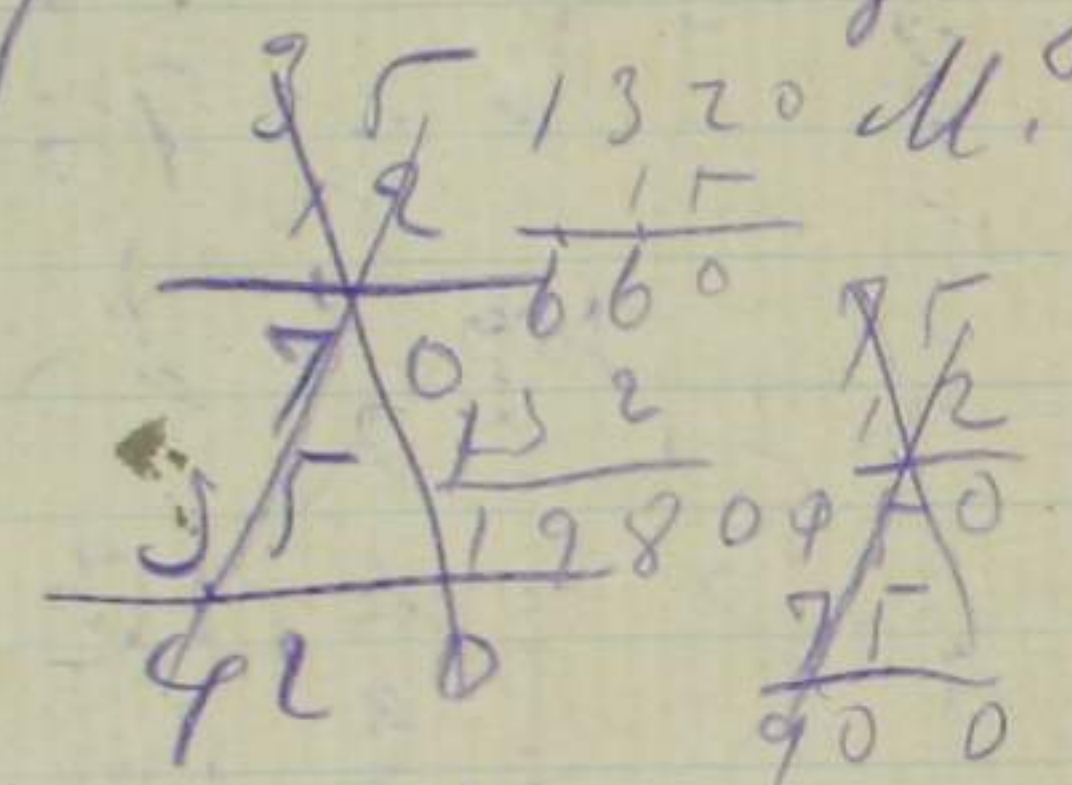 35
12
70
35
420
1320
15
660
132
19800
75
12
150
75
900
М.